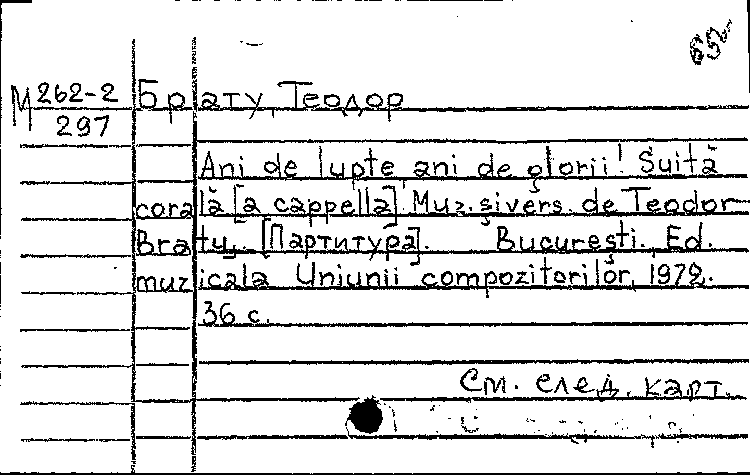 M 262-2 Брату, Теодор
297
Ani de lupte, ani de glorii! Suită
corală [a cappella]. Muz. şi vers. de Teodor
Bratu. [Партитура]. Bucureşti, Ed.
muzicala Uniunii compozitorilor, 1972.
36 с.
См. след. карт.